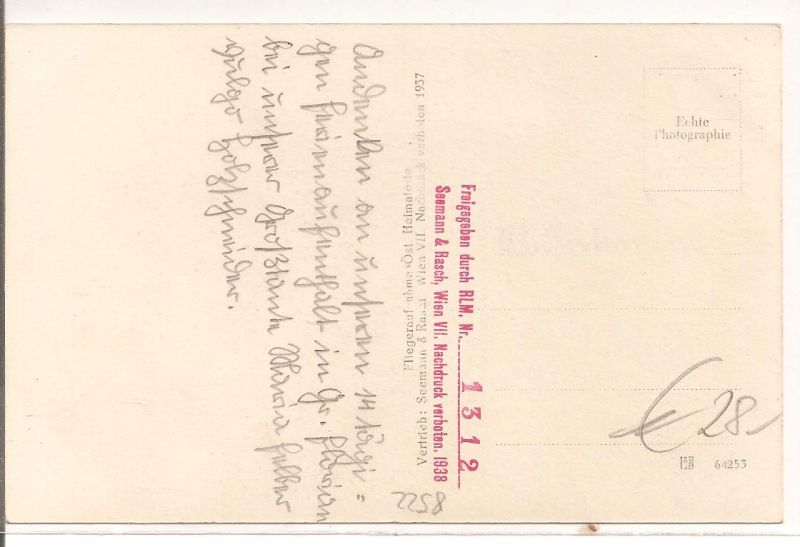 Andenken an unseren 14 tägi=
gen Ferienaufenthalt in Gr. Florian
bei unserer Großtante Maria
vulgo Holzschneider.
Fliegeraufnahme Öst. Heimatorte
Vertrieb: Seemann & Rasch Wien VII. Nachdruck verboten 1937
Freigegeben durch RLM. Nr. 1312
Seemann & Rasch, Wien VII. Nachdruck verboten. 1938
Echte
Photographie
€ 28.-
64253
8522